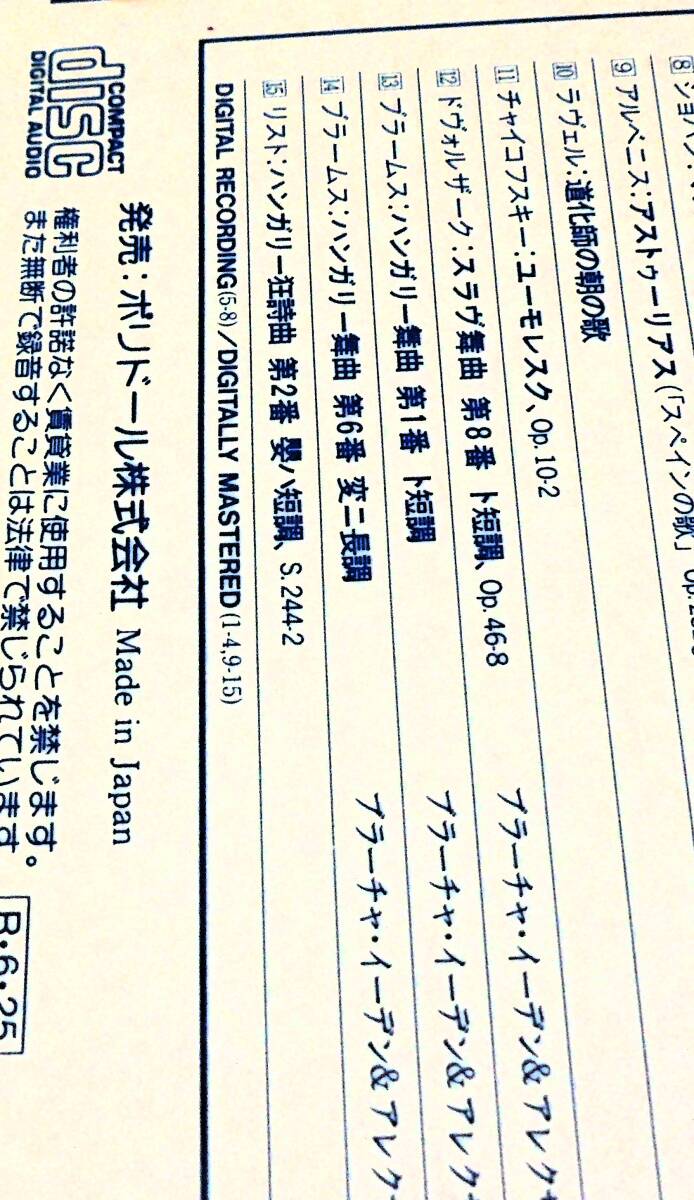 8 ショパン:
9 アルベニス:アストゥーリアス(「スペインの歌」
10 ラヴェル:道化師の朝の歌
11 チャイコフスキー:ユーモレスク、Op.10-2
12 ドヴォルザーク:スラヴ舞曲 第8番 ト短調、Op.46-8 ブラーチャ・イーデン&アレク
13 ブラームス:ハンガリー舞曲 第1番 ト短調 ブラーチャ・イーデン&アレク
14 ブラームス:ハンガリー舞曲 第6番 変ニ長調 ブラーチャ・イーデン&アレク
15 リスト:ハンガリー狂詩曲 第2番 嬰ハ短調、S.244-2
DIGITAL RECORDING(5-8)/DIGITALLY MASTERED(1-4,9-15)
COMPACT
disc
DIGITAL AUDIO
発売:ポリドール株式会社 Made in Japan
権利者の許諾なく賃貸業に使用することを禁じます。
また無断で録音することは法律で禁じられています
R・6・25